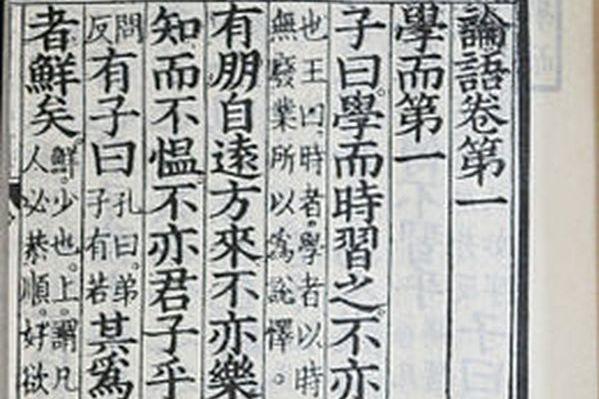 論語卷第一
學而第一
子曰。學而時習之。不亦
也王曰。時者。學者以時
無廢業所以爲說懌。
有朋自遠方來不亦樂
知而不愠。不亦君子乎
問
反
有子曰
孔曰。弟
子有若
其爲
者鮮矣
鮮。少也。上。謂凡
人必恭順。好欲